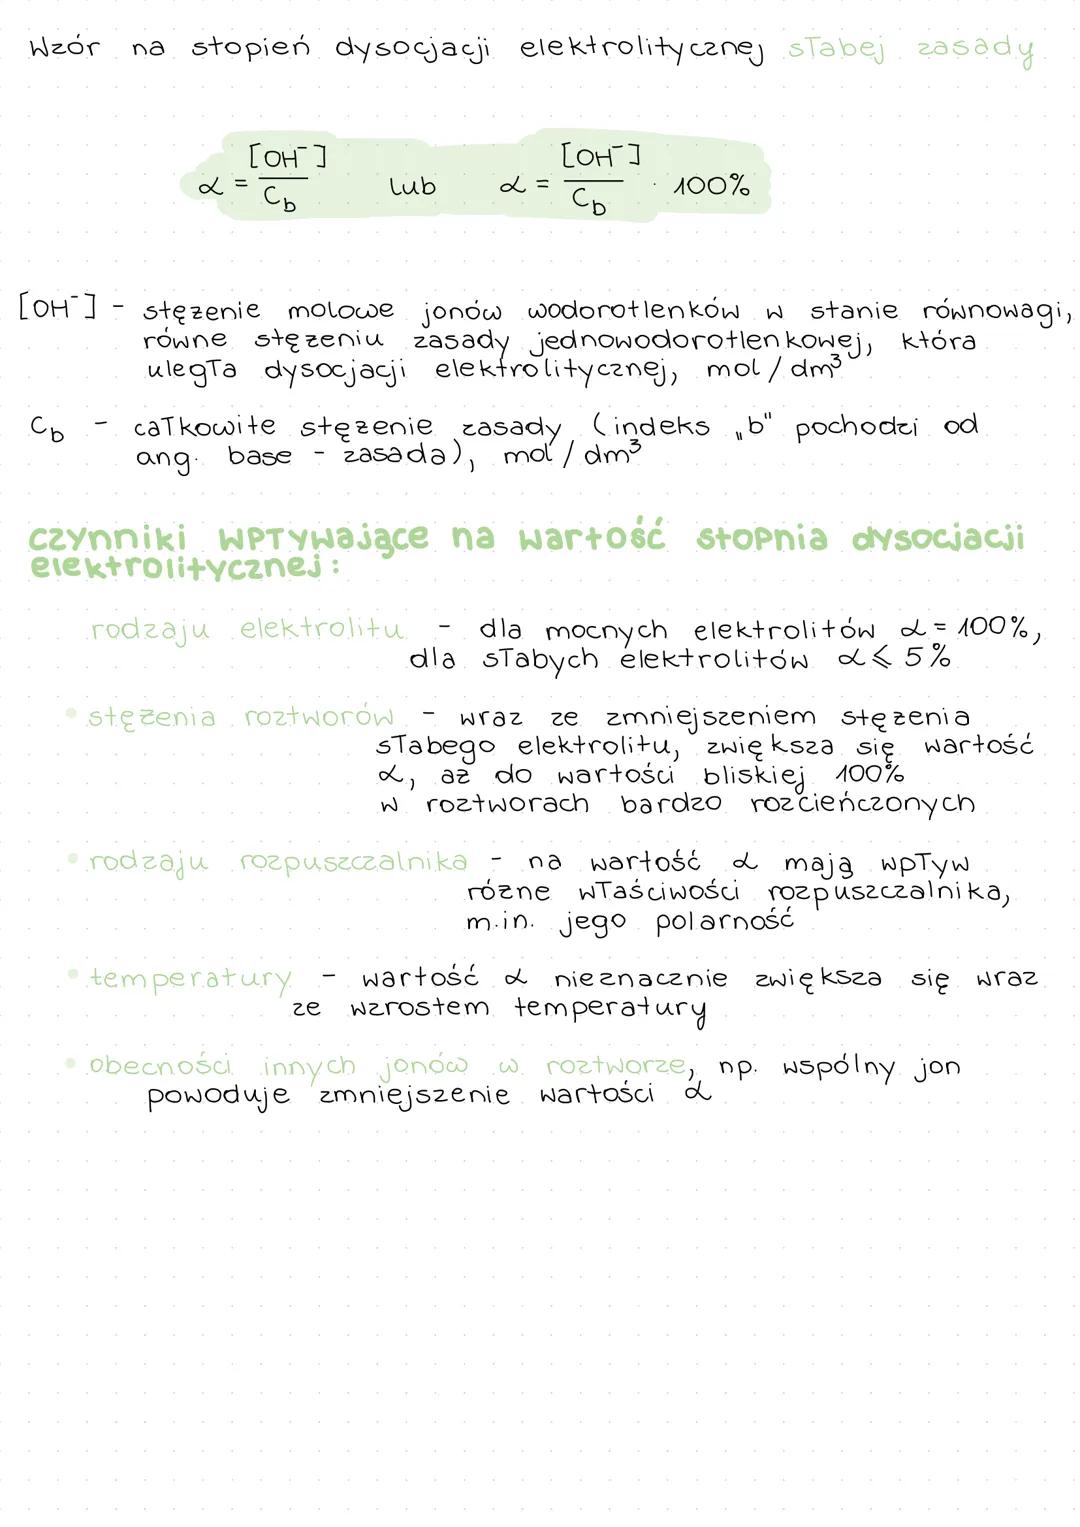 Wzór na stopień dysocjacji elektrolitycznej słabej zasady
α = [OH⁻] / Cb lub α = [OH⁻] / Cb · 100%
[OH⁻] - stężenie molowe jonów wodorotlenków w stanie równowagi,
równe stężeniu zasady jednowodorotlenkowej, która
uległa dysocjacji elektrolitycznej, mol / dm³
Cb - całkowite stężenie zasady (indeks „b" pochodzi od
ang. base - zasada), mol / dm³
czynniki wpływające na wartość stopnia dysocjacji
elektrolitycznej:
rodzaju elektrolitu - dla mocnych elektrolitów α = 100%,
dla słabych elektrolitów α ⩽ 5%
• stężenia roztworów - wraz ze zmniejszeniem stężenia
słabego elektrolitu, zwiększa się wartość
α, aż do wartości bliskiej 100%
w roztworach bardzo rozcieńczonych
• rodzaju rozpuszczalnika - na wartość α mają wpływ
różne właściwości rozpuszczalnika,
m.in. jego polarność
• temperatury - wartość α nieznacznie zwiększa się wraz
ze wzrostem temperatury
• obecności innych jonów w roztworze, np. wspólny jon
powoduje zmniejszenie wartości α